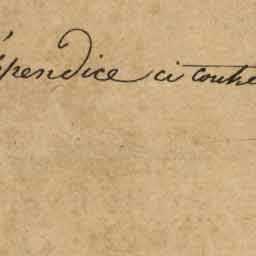 épendice ci contre